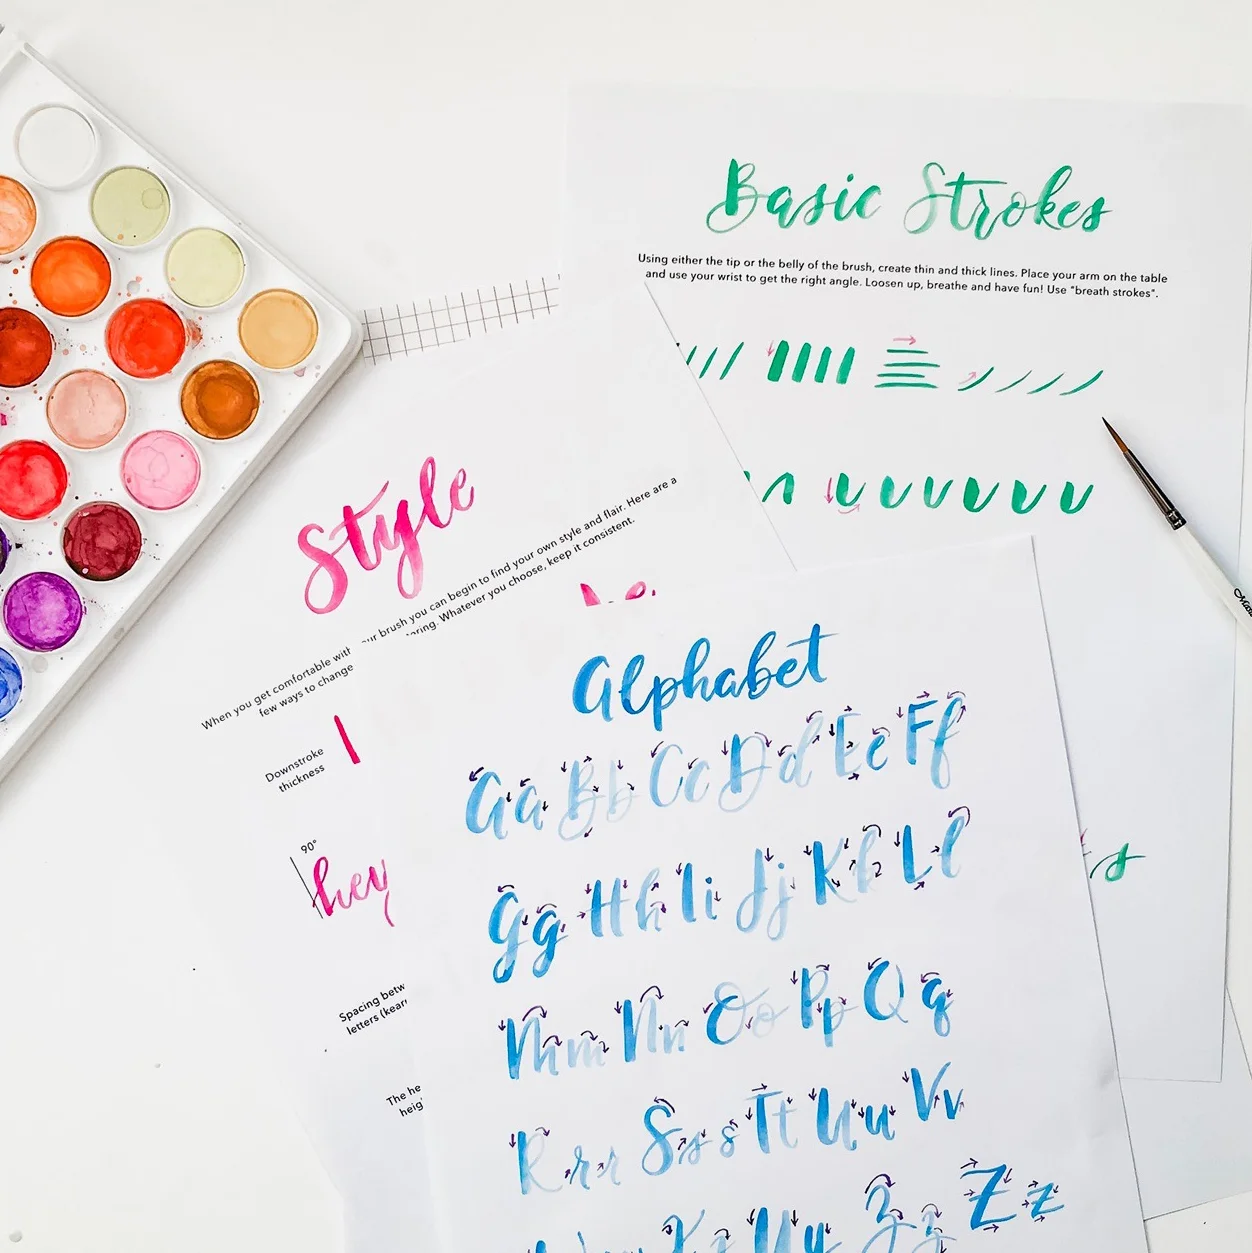 Basic Strokes
Using either the tip or the belly of the brush, create thin and thick lines. Place your arm on the table
and use your wrist to get the right angle. Loosen up, breathe and have fun! Use "breath strokes".
Style
When you get comfortable with your brush you can begin to find your own style and flair. Here are a
few ways to change Whatever you choose, keep it consistent.
Downstroke
thickness
90°
hey
Spacing
letters
The
Alphabet
Aa Bb Cc Dd Ee Ff
Gg Hh Ii Jj Kk Ll
Mm Nn Oo Pp Qq
Rrr Sss Tt Uu Vv
Zz